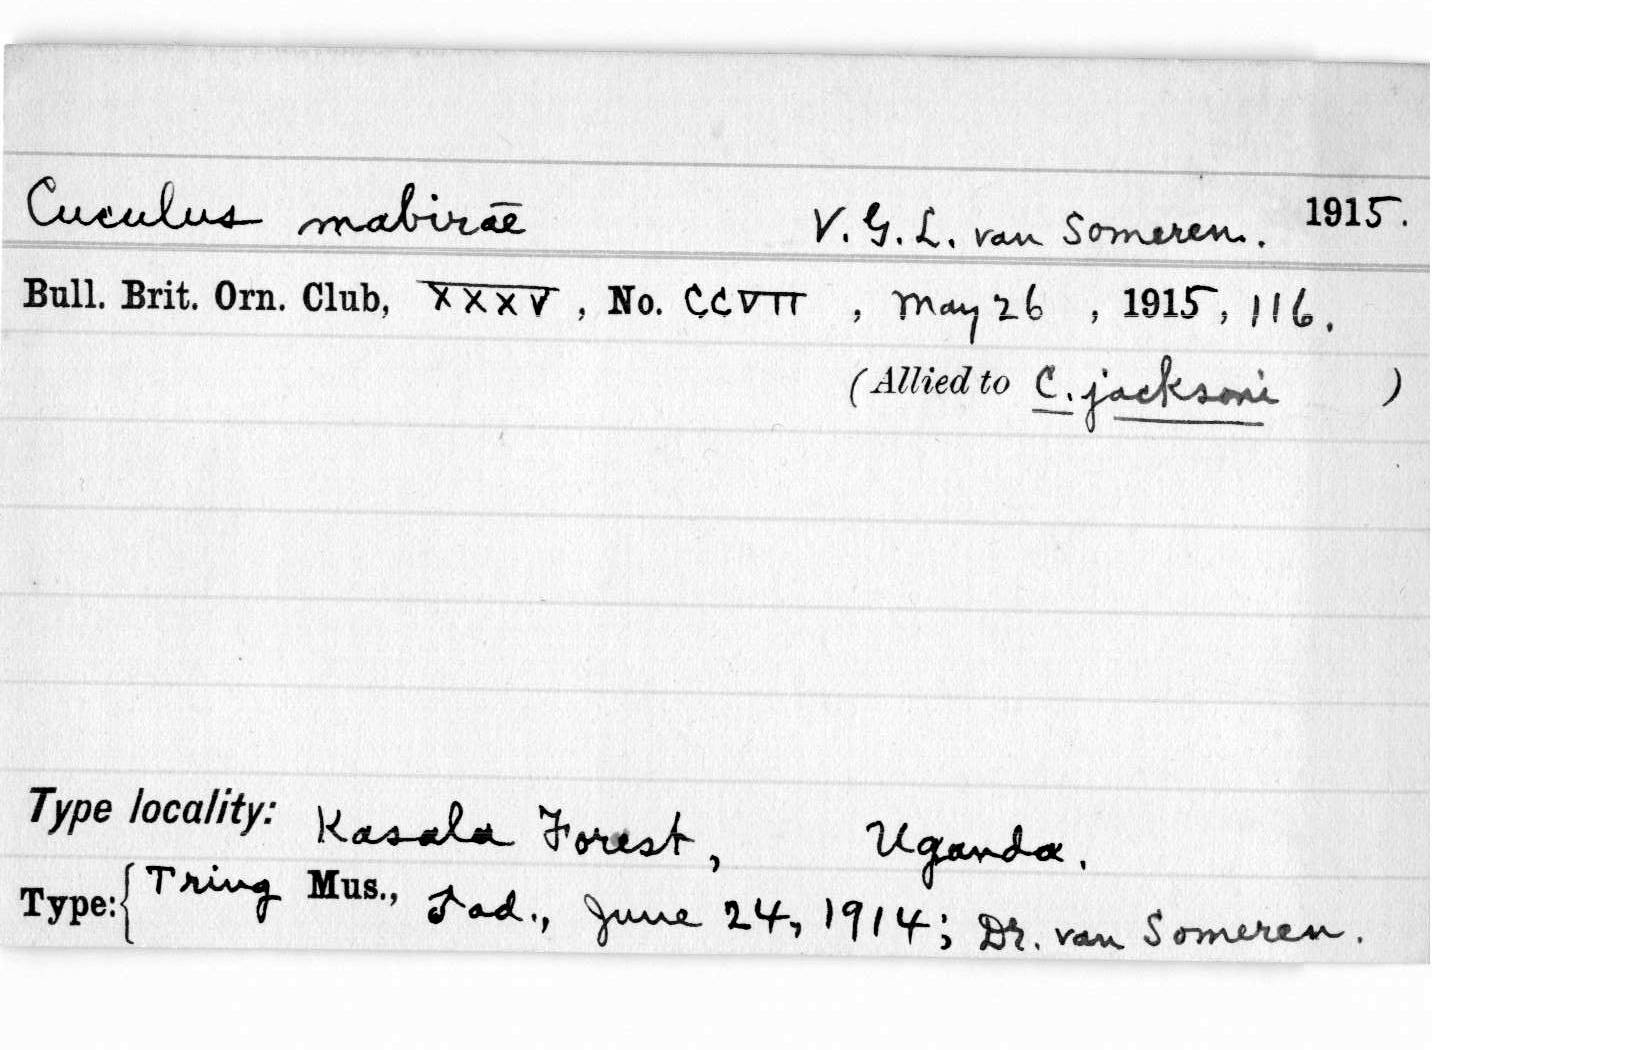 Cuculus mabirae V. G. L. van Someren. 1915.
Bull. Brit. Orn. Club, XXXV, No. CCVII, May 26, 1915, 116.
(Allied to C. jacksoni)
Type locality: Kasala Forest, Uganda.
Type: { Tring Mus., ♂ ad., June 24, 1914; Dr. van Someren.